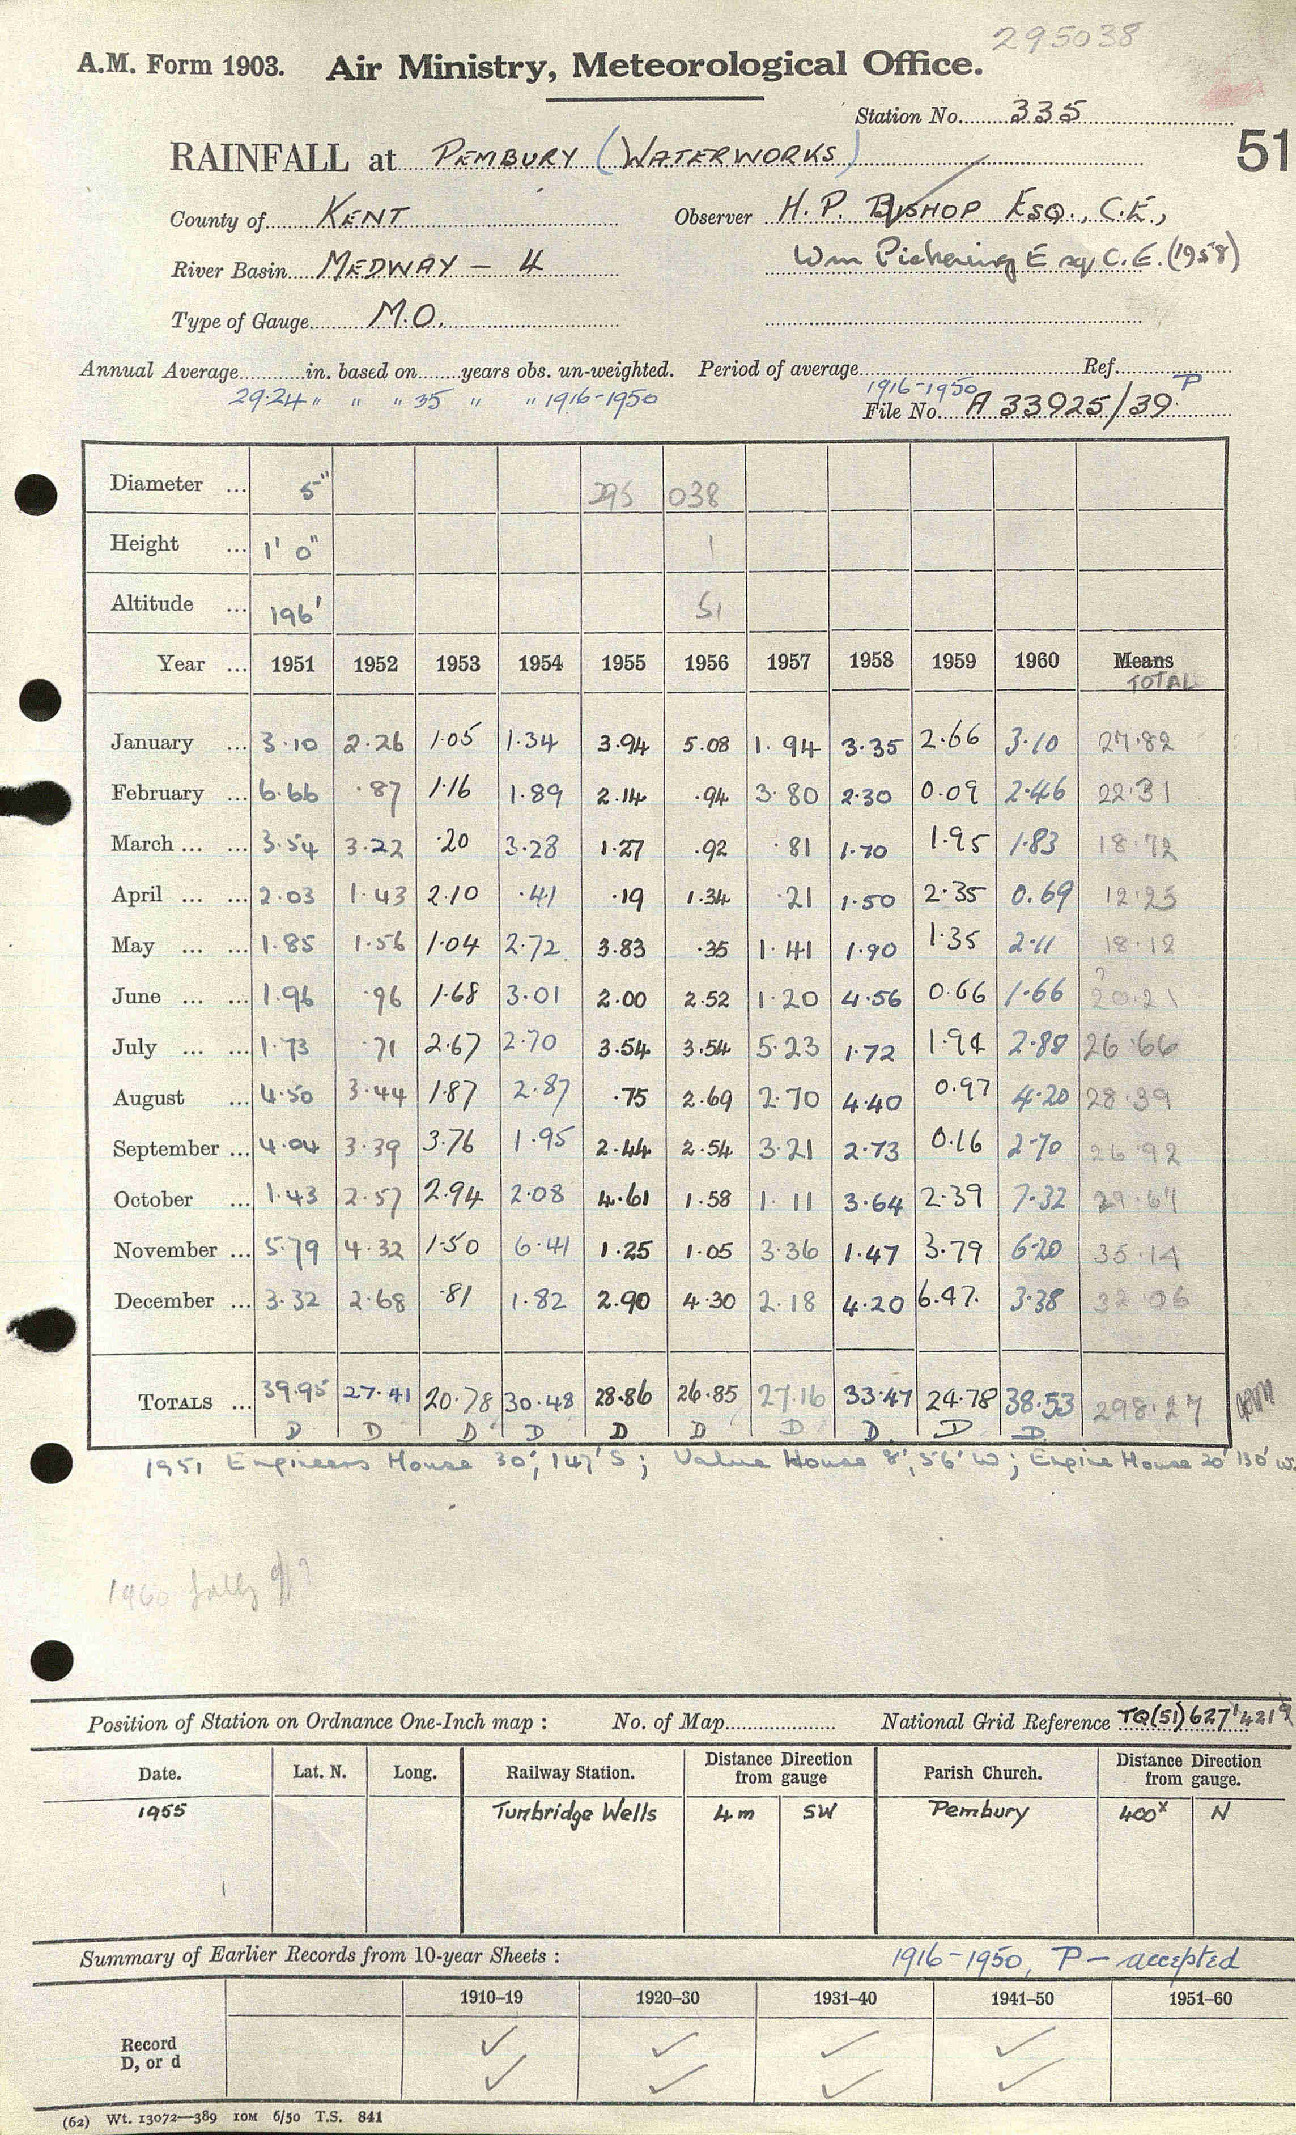 295038
A.M. Form 1903. Air Ministry, Meteorological Office.
Station No. 335
51
RAINFALL at PEMBURY (WATERWORKS)
County of KENT Observer H. P. BISHOP ESQ., C.E.,
River Basin MEDWAY – 4 Wm Pickering Esq C.E. (1958)
Type of Gauge M.O.
Annual Average in. based on years obs. un-weighted. Period of average Ref.
29.24 " " " 35 " " 1916-1950 1916-1950 P
File No. A 33925/39
Diameter ... 5" 295 038
Height ... 1' 0" 1
Altitude ... 196' 51
Year ... 1951 1952 1953 1954 1955 1956 1957 1958 1959 1960 Means
TOTAL
January ... 3.10 2.26 1.05 1.34 3.94 5.08 1.94 3.35 2.66 3.10 27.82
February ... 6.66 .87 1.16 1.89 2.14 .94 3.80 2.30 0.09 2.46 22.31
March ... ... 3.54 3.22 .20 3.28 1.27 .92 .81 1.70 1.95 1.83 18.72
April ... ... 2.03 1.43 2.10 .41 .19 1.34 .21 1.50 2.35 0.69 12.25
May ... ... 1.85 1.56 1.04 2.72 3.83 .35 1.41 1.90 1.35 2.11 18.12
June ... ... 1.96 .96 1.68 3.01 2.00 2.52 1.20 4.56 0.66 1.66 20.21
July ... ... 1.73 .71 2.67 2.70 3.54 3.54 5.23 1.72 1.94 2.88 26.66
August ... 4.50 3.44 1.87 2.87 .75 2.69 2.70 4.40 0.97 4.20 28.39
September ... 4.04 3.39 3.76 1.95 2.44 2.54 3.21 2.73 0.16 2.70 26.92
October ... 1.43 2.57 2.94 2.08 4.61 1.58 1.11 3.64 2.39 7.32 29.67
November ... 5.79 4.32 1.50 6.41 1.25 1.05 3.36 1.47 3.79 6.20 35.14
December ... 3.32 2.68 .81 1.82 2.90 4.30 2.18 4.20 6.47 3.38 32.06
TOTALS ... 39.95 27.41 20.78 30.48 28.86 26.85 27.16 33.47 24.78 38.53 298.27
D D D D D D D D D D
1951 Engineers House 30', 147' S; Valve House 8', 56' W; Engine House 20' 130' W.
1960
Position of Station on Ordnance One-Inch map : No. of Map National Grid Reference TQ(51)627'421
Date. Lat. N. Long. Railway Station. Distance Direction from gauge Parish Church. Distance Direction from gauge.
1955 Tunbridge Wells 4m SW Pembury 400x N
Summary of Earlier Records from 10-year Sheets : 1916-1950, P – accepted
1910–19 1920–30 1931–40 1941–50 1951–60
Record ✓ ✓ ✓ ✓
D, or d ✓ ✓ ✓ ✓
(62) Wt. 13072—389 10M 6/50 T.S. 841